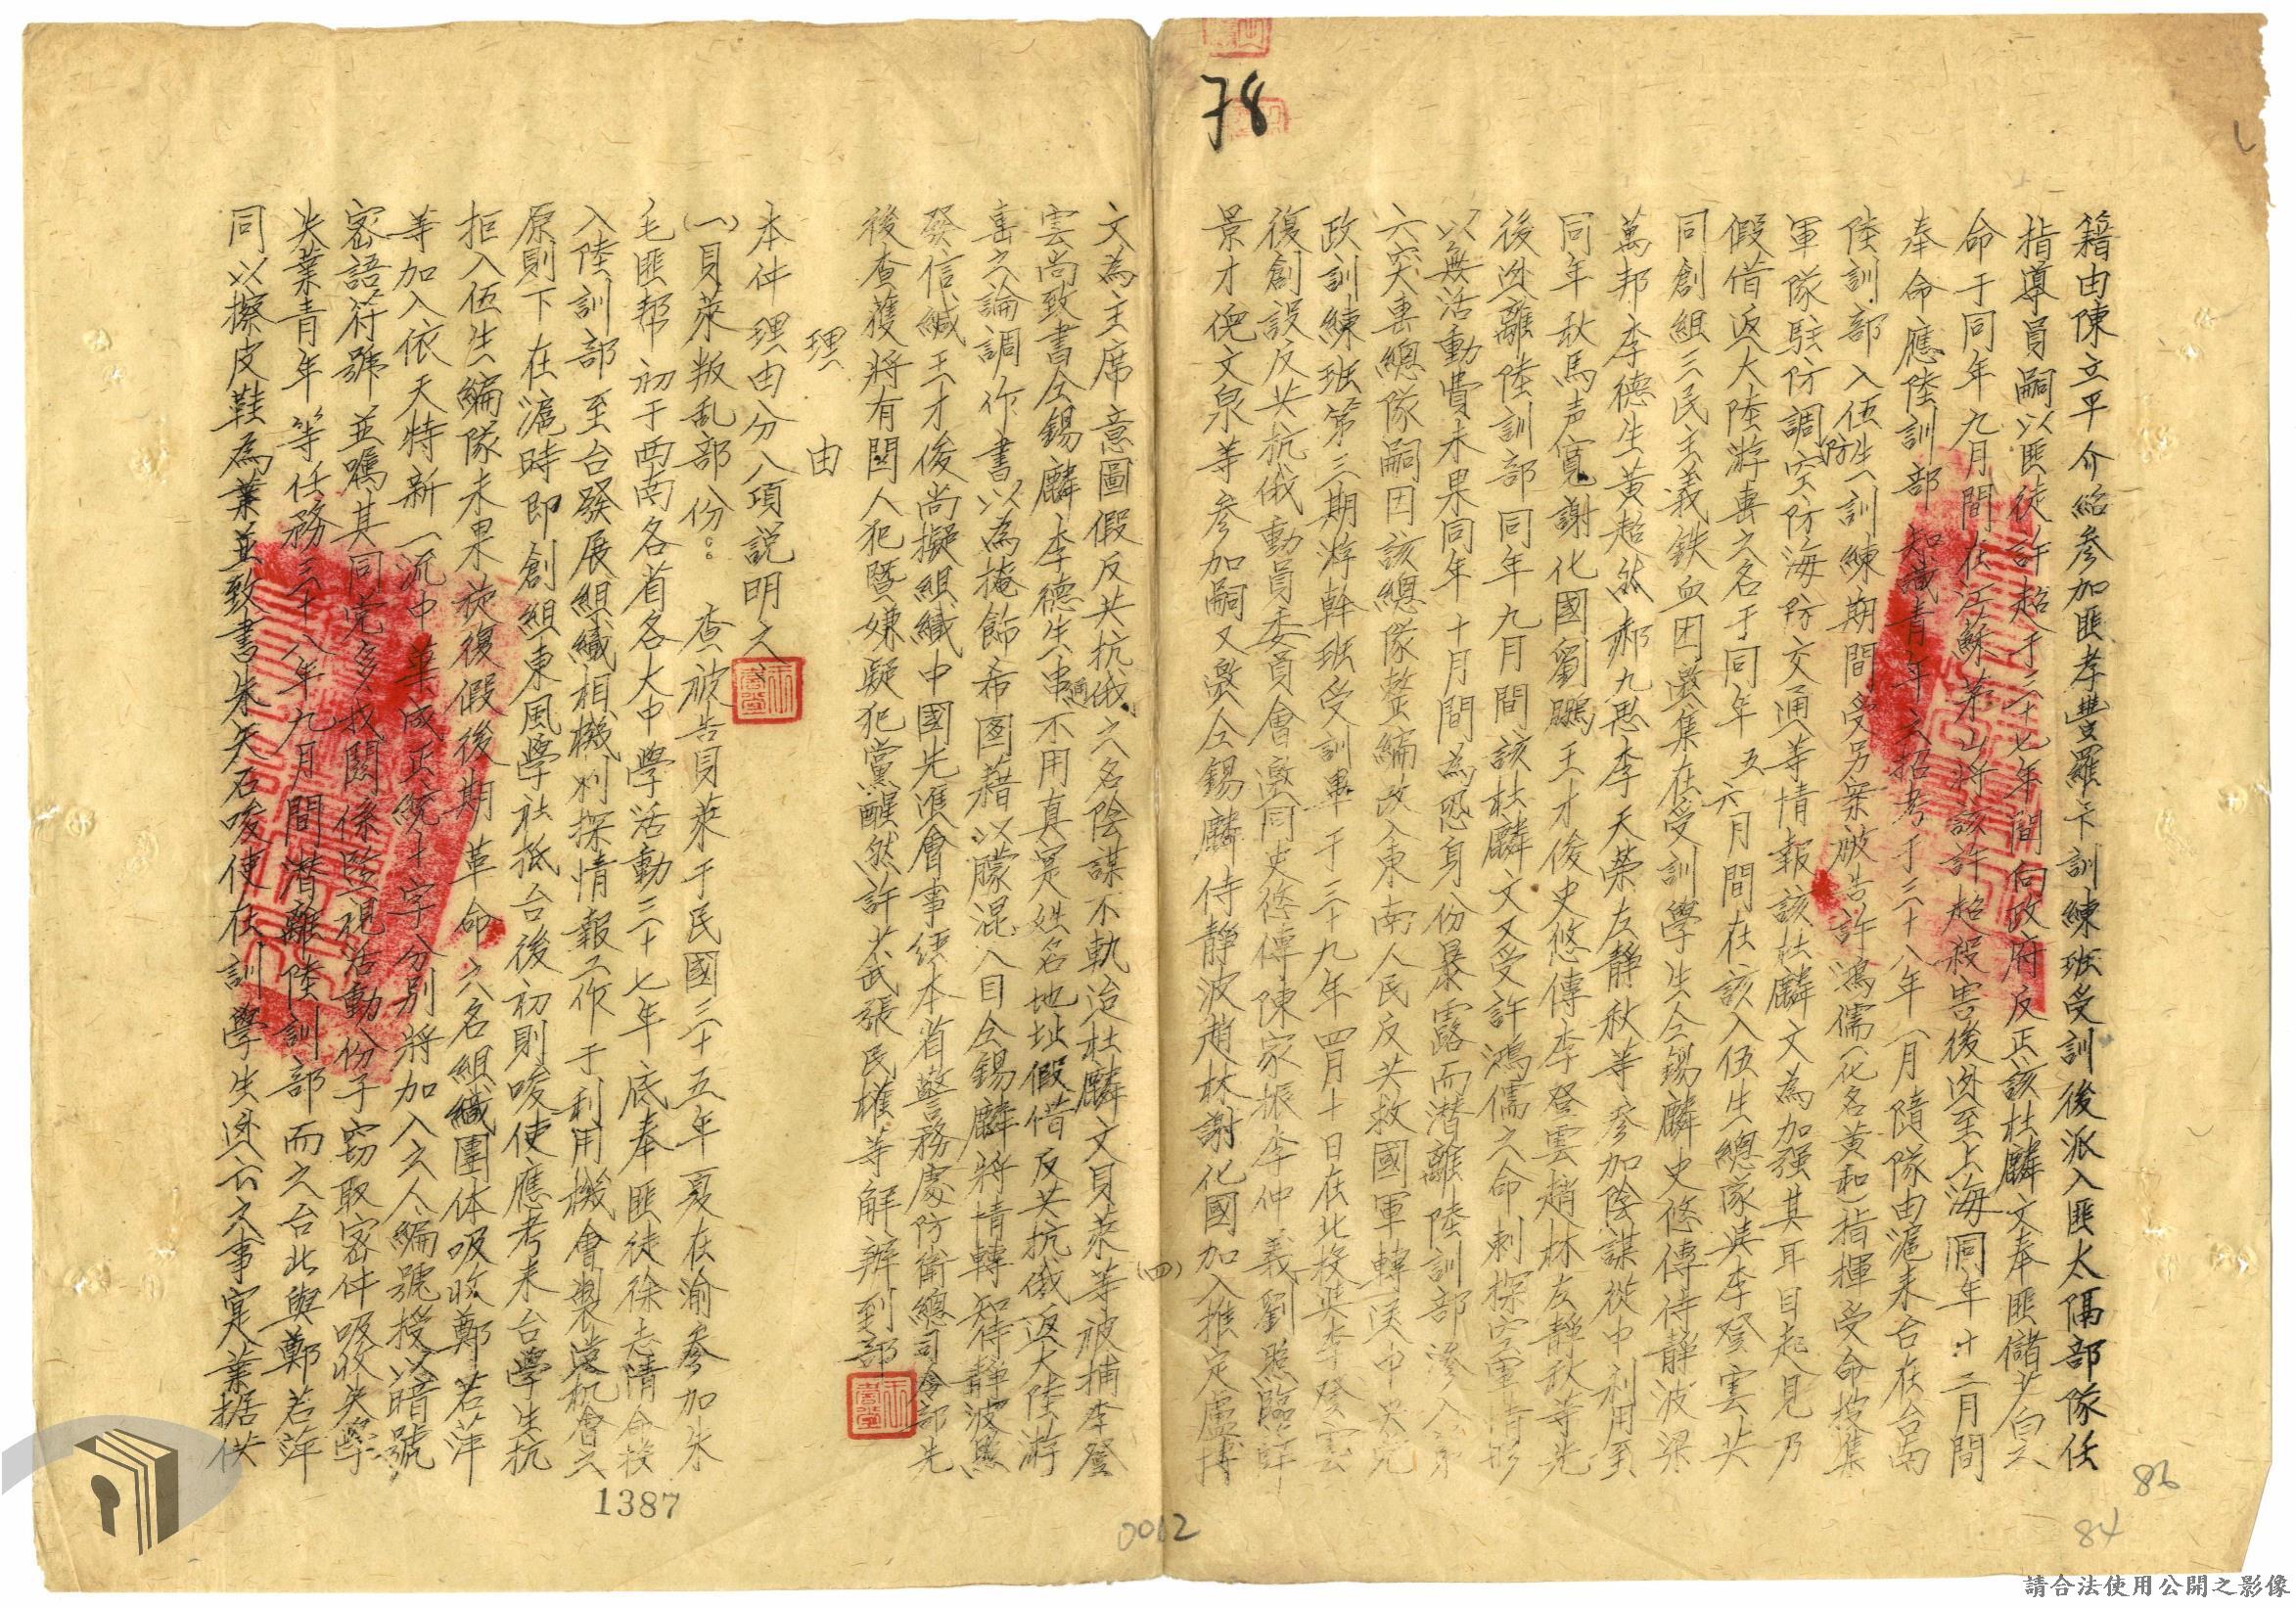 78
籍由陳立平介紹參加匪孝豐羅卡訓練班受訓後派入匪太隔部隊任
指導員嗣以匪徒許超于三十七年間向政府反正該杜麟文奉匪儲芷白之
命于同年九月間在江蘇茅山將該許超殺害後逃至上海同年十二月間
奉命應陸訓部知識青年之招考于三十八年一月隨隊由滬來台在台南
陸訓部入伍生訓練期間受另案被告許鴻儒(化名黃和)指揮受命搜集
軍隊駐防調防空防海防交通等情報該杜麟文為加强其耳目起見乃
假借返大陸游击之名于同年五六月間在該入伍生總隊與李登雲共
同創組三民主義鉄血団邀集在受訓學生仝錫麟史悠傳侍靜波梁
萬邦李德生黃超然郝九思李天榮左靜秋等參加陰謀從中利用至
同年秋馬声寬謝化國劉鵬王才俊史悠傳李登雲趙林左靜秋等先
後逃離陸訓部同年九月間該杜麟文又受許鴻儒之命刺探空軍情形
以無活動費未果同年十月間為恐身份暴露而潛離陸訓部滲入第
六突击總隊嗣因該總隊整編改入東南人民反共救國軍轉送中央党
政訓練班第三期游幹班受訓畢于三十九年四月十日在北投與李登雲
復創設反共抗俄動員委員會邀同史悠傳陳家振李仲義劉照臨薛
景才倪文泉等參加嗣又邀仝錫麟侍靜波趙林謝化國加入推定盧博
文為主席意圖假反共抗俄之名陰謀不軌迨杜麟文貝萊等被捕李登
雲尚致書仝錫麟李德生串通不用真寔姓名地址假借反共抗俄返大陸游
击之論調作書以為掩飾希図藉以朦混入目仝錫麟將情轉知侍靜波照
發信緘王才俊尚擬組織中國先滙會事經本省警務處防衛總司令部先
後查獲將有関人犯暨嫌疑犯黨醒然許共武張民權等解辦到部
理由
本件理由分八項説明之
(一)貝萊叛乱部份：查被告貝萊于民國三十五年夏在渝參加朱
毛匪帮初于西南各省各大中學活動三十七年底奉匪徒徐志清命投
入陸訓部至台發展組織相機刺探情報工作于利用機會製造机會之
原則下在滬時即創組東風学社抵台後初則唆使應考來台學生抗
拒入伍生編隊未果旋復假後期革命六名組織團体吸收鄭若萍
等加入依天特新一流中華成正統十字分別將加入之人編號授以暗號
密語符號並嘱其同党多找関係監視活動份子窃取密件吸收失學
失業青年等任務三十八年九月間潛離陸訓部而之台北與鄭若萍
同以擦皮鞋為業並致書朱矢石唆使在訓學生逃亡之事寔業据供
(四)
1387
0012
86
84
請合法使用公開之影像